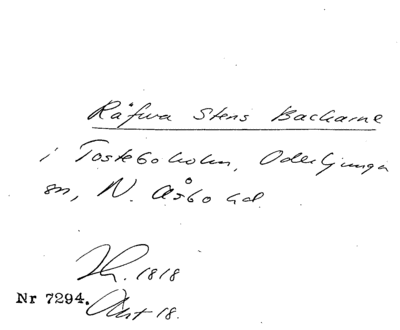 Råfwa Stens Backarne
i Tosteboholm, Oderljunga
sn, N. Åsbo hd.
Th. 1818
Nr 7294. Akt 18.